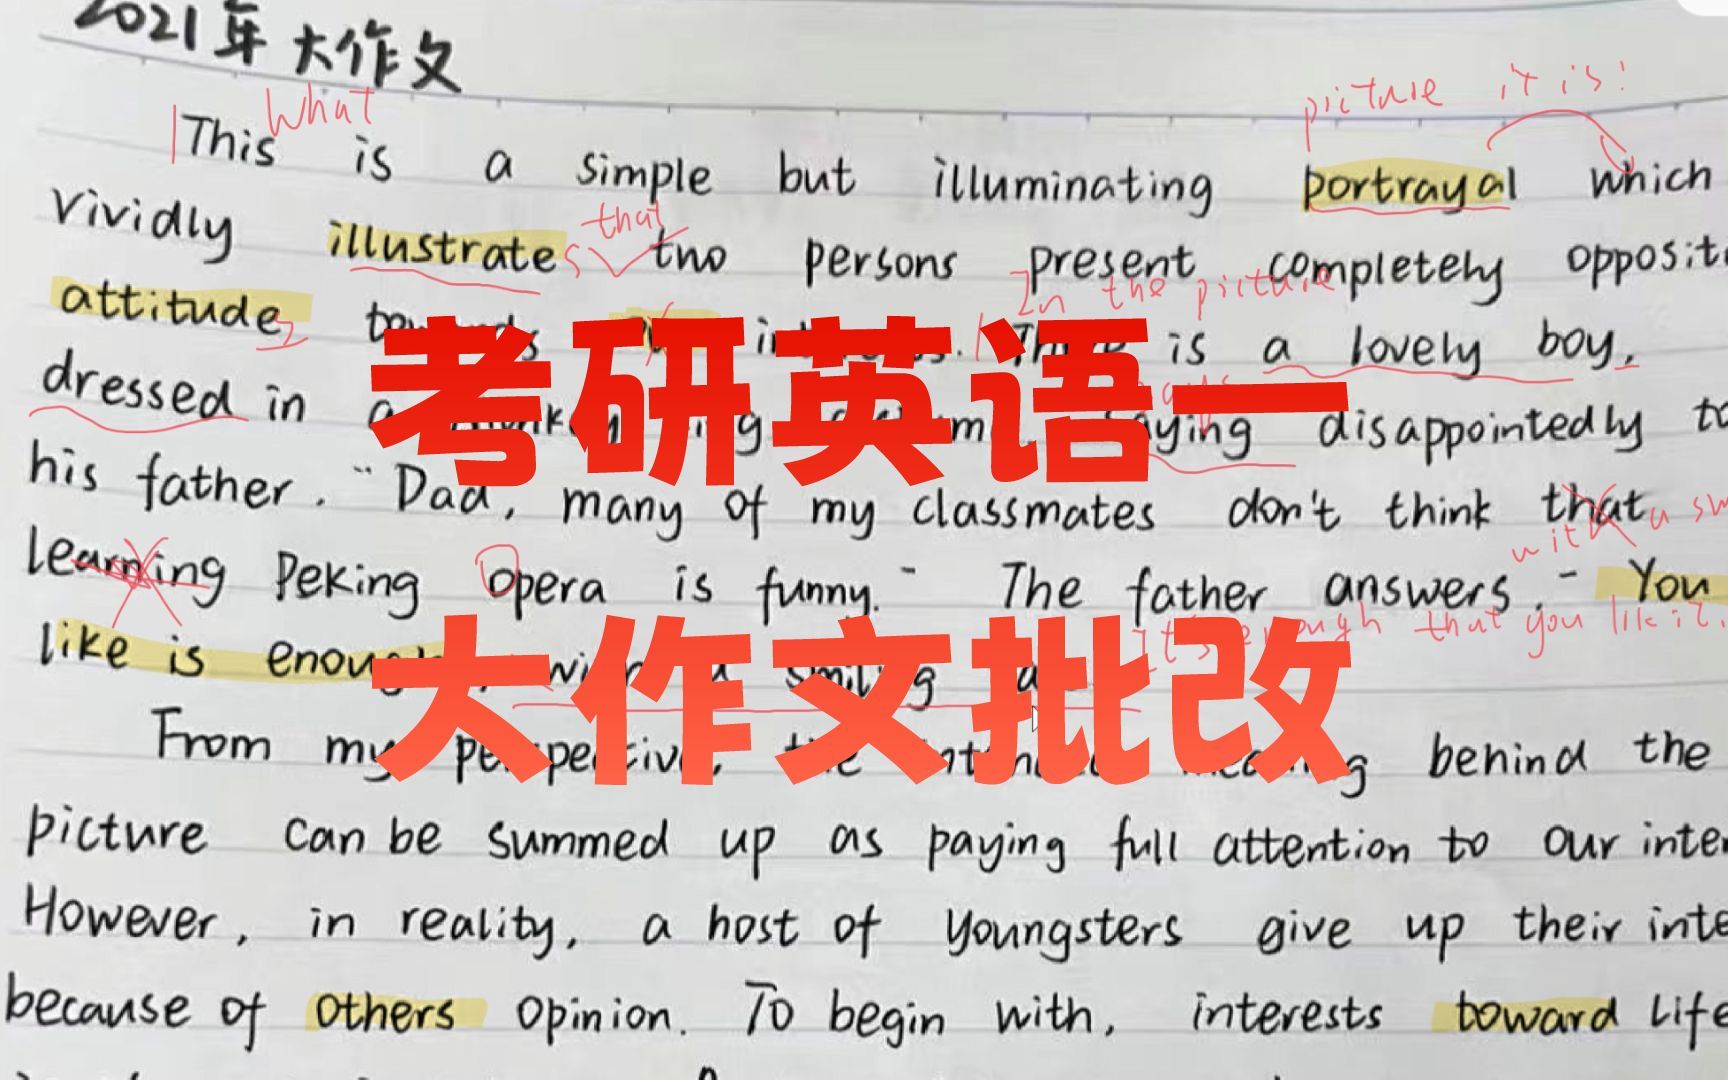 2021年 大作文
What
picture it is!
This is a simple but illuminating portrayal which
that
vividly illustrate s two persons present completely
In the picture
attitude
is a lovely boy,
考研英语一
dressed in disappointedly
his father. "Dad, many of my classmates don't think that
with a
learning Peking opera is funny." The father answers, "You
It's enough that you like it.
like is enough
大作文批改
From my behind the
picture can be summed up as paying full attention to our
However, in reality, a host of youngsters give up their
because of others opinion. To begin with, interests toward